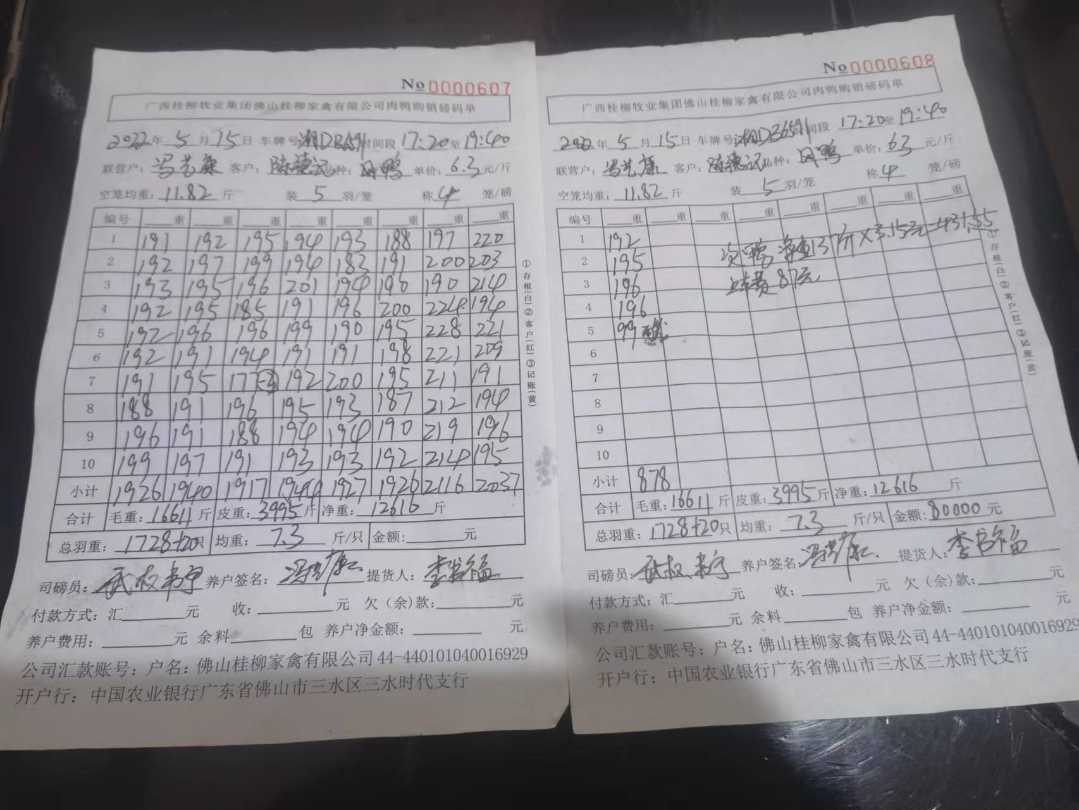 No 0000607
广西桂柳牧业集团佛山桂柳家禽有限公司肉鸭购销磅码单
2022年 5 月 15 日 车牌号 时间段 17:20至19:40
联营户: 客户: 陈德记 品种: 单价: 6.3 元/斤
空笼均重: 11.82 斤 装 5 羽/笼 称 4 笼/磅
编号 重 重 重 重 重 重 重 重
1 191 192 195 194 193 188 197 220
2 192 197 199 194 183 191 200 203
3 193 195 196 201 194 190 190 214
4 192 195 185 191 196 200 224 194
5 192 196 196 199 190 195 228 221
6 192 191 194 191 191 198 221 209
7 191 195 177 192 200 195 211 191
8 188 191 196 195 193 187 212 194
9 196 191 188 194 194 190 219 196
10 199 197 191 193 193 192 214 195
小计 1926 1940 1917 1944 1927 1926 2116 2037
合计 毛重: 16611 斤 皮重: 3995 斤 净重: 12616 斤
总羽重: 1728+20 只 均重: 7.3 斤/只 金额: 元
①存根(白)②客户(红)③记账(黄)
司磅员: 养户签名: 提货人: 李书福
付款方式: 汇 元 收: 元 欠(余)款: 元
养户费用: 元 余料 包 养户净金额: 元
公司汇款账号: 户名: 佛山桂柳家禽有限公司 44-440101040016929
开户行: 中国农业银行广东省佛山市三水区三水时代支行
No 0000608
广西桂柳牧业集团佛山桂柳家禽有限公司肉鸭购销磅码单
2022年 5 月 15 日 车牌号 湘DB6591 时间段 17:20至19:40
联营户: 客户: 陈德记 品种: 单价: 6.3 元/斤
空笼均重: 11.82 斤 装 5 羽/笼 称 4 笼/磅
编号 重 重 重 重 重 重 重 重
1 192
次鸭 净重137斤×3.15元=431.55
2 195
3 196
费87元
4 196
5 99
6
7
8
9
10
小计 878
合计 毛重: 16611 斤 皮重: 3995 斤 净重: 12616 斤
总羽重: 1728+20 只 均重: 7.3 斤/只 金额: 80000 元
①存根(白)②客户(红)③记账(黄)
司磅员: 养户签名: 提货人: 李书福
付款方式: 汇 元 收: 元 欠(余)款: 元
养户费用: 元 余料 包 养户净金额: 元
公司汇款账号: 户名: 佛山桂柳家禽有限公司 44-440101040016929
开户行: 中国农业银行广东省佛山市三水区三水时代支行